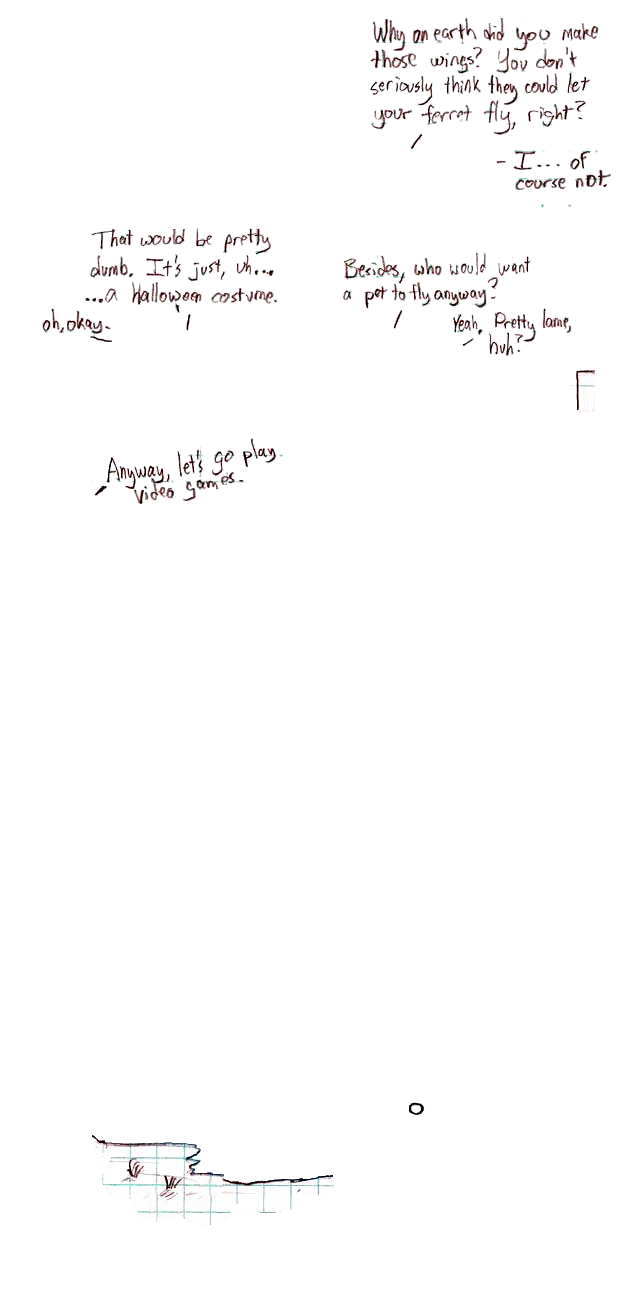 Why on earth did you make
those wings? You don't
seriously think they could let
your ferret fly, right?
- I... of
course not.
That would be pretty
dumb. It's just, uh...
...a Halloween costume.
oh, okay.
Besides, who would want
a pet to fly anyway?
Yeah. Pretty lame,
huh?
Anyway, let's go play
video games.